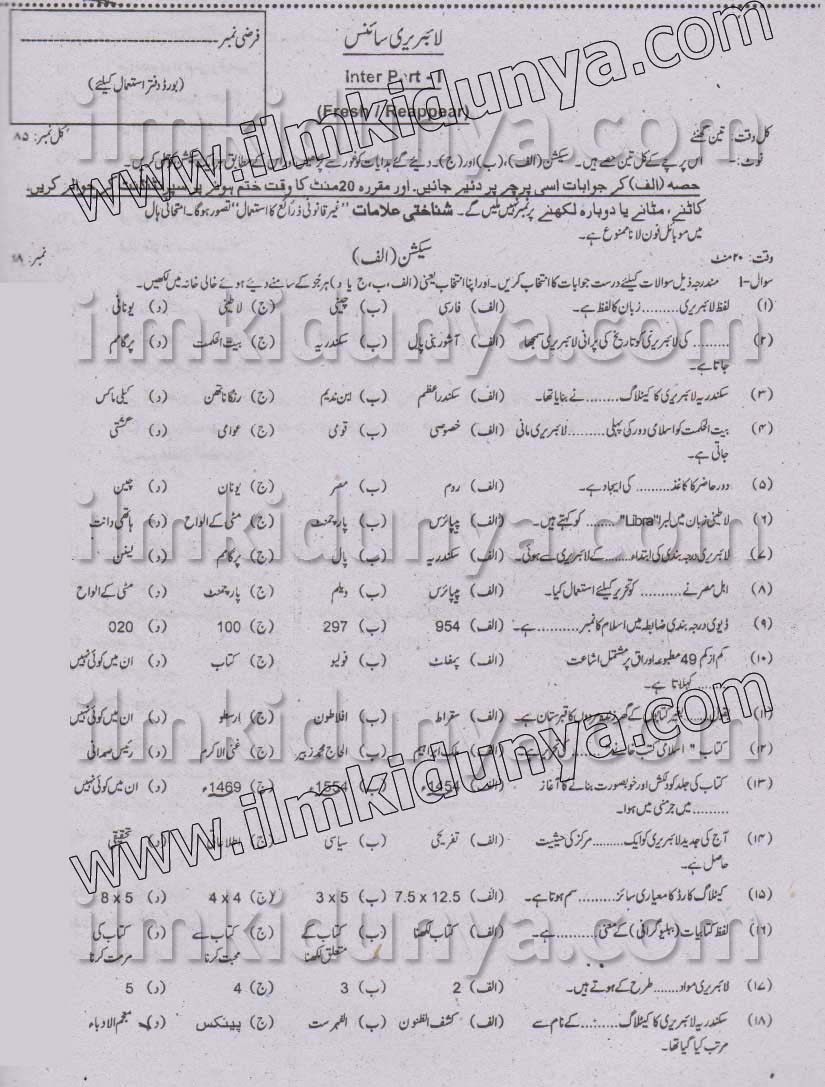 لائبریری سائنس
فرضی نمبر
Inter Part - I
(بورڈ دفتر استعمال کیلئے)
(Fresh / Reappear)
کل وقت: تین گھنٹے
کل نمبر: ۸۵
نوٹ:- اس پرچے کے کل تین حصے ہیں۔ سیکشن (الف)، (ب) اور (ج)۔ دیئے گئے ہدایات کو غور سے
حصہ (الف) کے جوابات اسی پرچے پر دئیے جائیں۔ اور مقررہ 20 منٹ کا وقت ختم ہونے پر
کاٹنے، مٹانے یا دوبارہ لکھنے پر نمبر نہیں ملیں گے۔ شناختی علامات "غیر قانونی ذرائع کا استعمال" تصور ہوگا۔ امتحانی ہال
میں موبائل فون لانا ممنوع ہے۔
وقت: ۲۰ منٹ
سیکشن (الف)
نمبر: ۱۸
سوال-I مندرجہ ذیل سوالات کیلئے درست جوابات کا انتخاب کریں۔ اور اپنا انتخاب یعنی (الف، ب، ج یا د) ہر جُز کے سامنے دیئے ہوئے خالی خانہ میں لکھیں۔
(۱) لفظ لائبریری......... زبان کا لفظ ہے۔ (الف) فارسی (ب) چینی (ج) لاطینی (د) یونانی
(۲) ......... کی لائبریری کو تاریخ کی پرانی لائبریری سمجھا (الف) آشور بنی پال (ب) سکندریہ (ج) بیت الحکمت (د) پرگامم
جاتا ہے۔
(۳) سکندریہ لائبریری کا کیٹلاگ........ نے بنایا تھا۔ (الف) سکندر اعظم (ب) ابن ندیم (ج) رنگاناتھن (د) کیلی ماکس
(۴) بیت الحکمت کو اسلامی دور کی پہلی ......... لائبریری مانی (الف) خصوصی (ب) قومی (ج) عوامی (د) گشتی
جاتی ہے۔
(۵) دور حاضر کا کاغذ........ کی ایجاد ہے۔ (الف) روم (ب) مصر (ج) یونان (د) چین
(۶) لاطینی زبان میں لبرا "Libra" ....... کو کہتے ہیں۔ (الف) پیپائرس (ب) پارچمنٹ (ج) مٹی کے الواح (د) ہاتھی دانت
(۷) لائبریری درجہ بندی کی ابتداء........ کے لائبریری سے ہوئی۔ (الف) سکندریہ (ب) پال (ج) پرگامم (د) لینن
(۸) اہل مصر نے .......... کو تحریر کیلئے استعمال کیا۔ (الف) پیپائرس (ب) ویلم (ج) پارچمنٹ (د) مٹی کے الواح
(۹) ڈیوی درجہ بندی ضابطہ میں اسلام کا نمبر.......... ہے۔ (الف) 954 (ب) 297 (ج) 100 (د) 020
(۱۰) کم از کم 49 مطبوعہ اوراق پر مشتمل اشاعت (الف) پمفلٹ (ب) فولیو (ج) کتاب (د) ان میں کوئی نہیں
........ کہلاتا ہے۔
(۱۱) بغیر کتابوں کے گھر قبرستان ہے۔ (الف) سقراط (ب) افلاطون (ج) ارسطو (د) ان میں کوئی نہیں
(۱۲) کتاب "اسلامی کتب خانے" (الف) (ب) الحاج محمد زبیر (ج) غنی الاکرم (د) رئیس صمدانی
(۱۳) کتاب کی جلد کو دلکش اور خوبصورت بنانے کا آغاز (الف) 1454ء (ب) 1554ء (ج) 1469ء (د) ان میں کوئی نہیں
......... میں جرمنی میں ہوا۔
(۱۴) آج کی جدید لائبریری کو ایک......... مرکز کی حیثیت (الف) تفریحی (ب) سیاسی (ج) (د) تحقیقی
حاصل ہے۔
(۱۵) کیٹلاگ کارڈ کا معیاری سائز ......... سم ہوتا ہے۔ (الف) 7.5 x 12.5 (ب) 3 x 5 (ج) 4 x 4 (د) 8 x 5
(۱۶) لفظ کتابیات (ببلیوگرافی) کے معنی ......... ہے۔ (الف) کتاب لکھنا (ب) کتاب کے (ج) کتاب سے (د) کتاب کی
متعلق لکھنا محبت کرنا مرمت کرنا
(۱۷) لائبریری مواد....... طرح کے ہوتے ہیں۔ (الف) 2 (ب) 3 (ج) 4 (د) 5
(۱۸) سکندریہ لائبریری کا کیٹلاگ......... کے نام سے (الف) کشف الظنون (ب) الفہرست (ج) پینکس (د) معجم الادباء
مرتب کیا گیا تھا۔
www.ilmkidunya.com
www.ilmkidunya.com
ilmkidunya.com
ilmkidunya.com
ilmkidunya.com
ilmkidunya.com
ilmkidunya.com